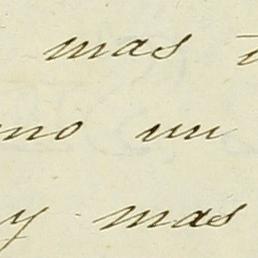 mas
un
y mas